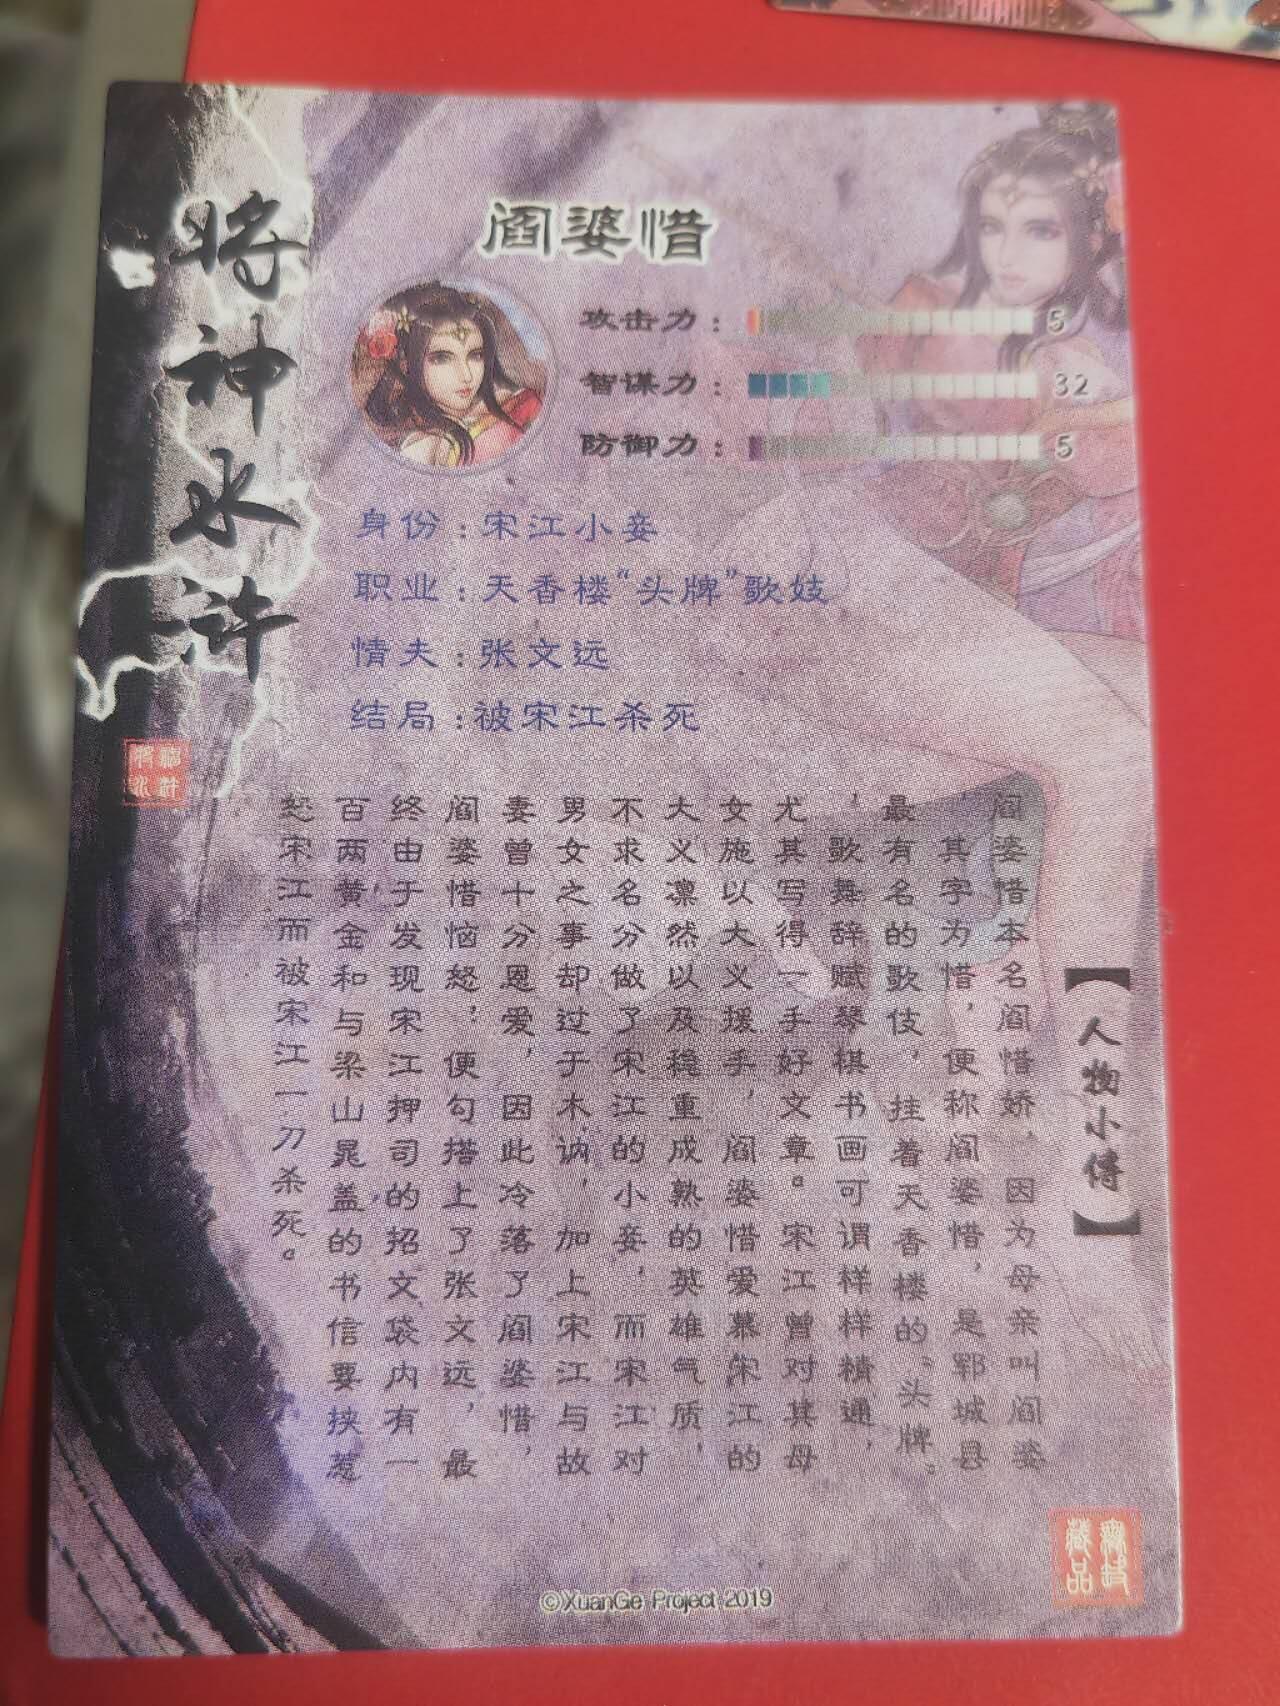 将神水浒
阎婆惜
攻击力：5
智谋力：32
防御力：5
身份：宋江小妾
职业：天香楼“头牌”歌妓
情夫：张文远
结局：被宋江杀死
【人物小传】
阎婆惜本名阎惜娇，因为母亲叫阎婆
，其字为惜，便称阎婆惜，是郓城县
最有名的歌伎，挂着天香楼的“头牌”
，歌舞辞赋琴棋书画可谓样样精通，
尤其写得一手好文章。宋江曾对其母
女施以大义援手，阎婆惜爱慕宋江的
大义凛然以及稳重成熟的英雄气质，
不求名分做了宋江的小妾，而宋江对
男女之事却过于木讷，加上宋江与故
妻曾十分恩爱，因此冷落了阎婆惜，
阎婆惜恼怒，便勾搭上了张文远，最
终由于发现宋江押司的招文袋内有一
百两黄金和与梁山晁盖的书信要挟惹
怒宋江而被宋江一刀杀死。
©XuanGe Project 2019